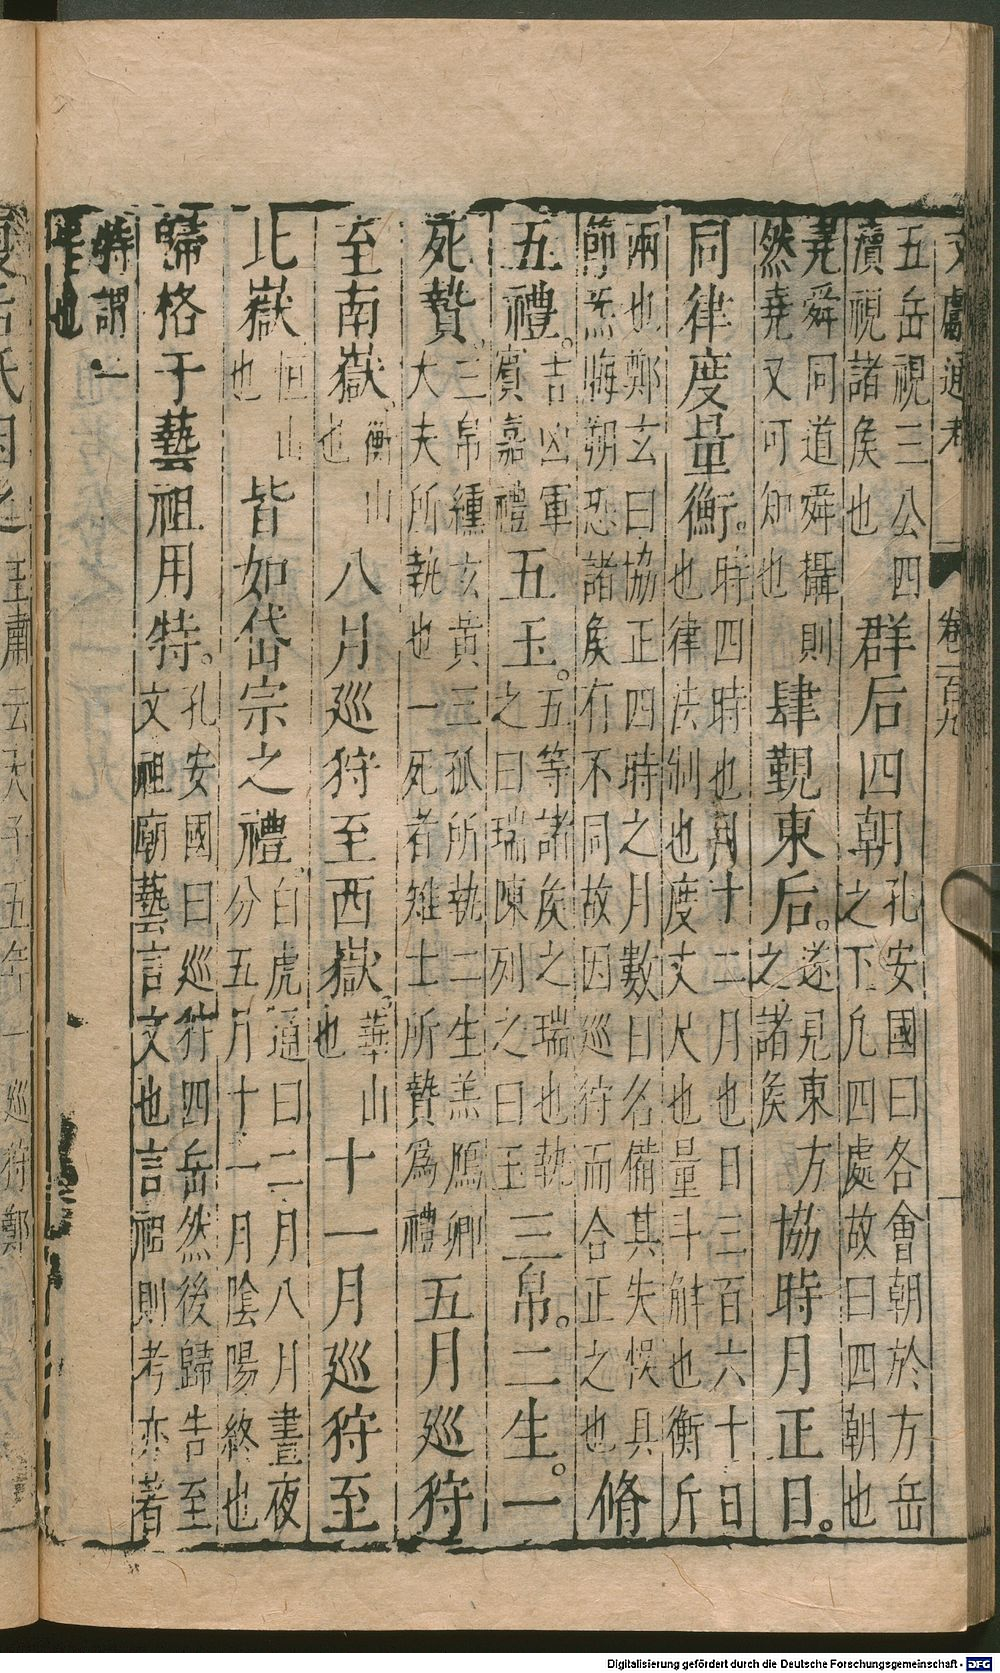 文獻通考
卷一百九
五岳視三公四
瀆視諸侯也
群后四朝
孔安國曰各會朝於方岳
之下凢四處故曰四朝也
堯舜同道舜攝則
然堯又可知也
肆覲東后。
遂見東方
之諸侯
協時月正日。
同律度量衡。
時四時也月十二月也日三百六十日
也律法制也度丈尺也量斗斛也衡斤
兩也鄭玄曰協正四時之月數日名備其失悮具
節炁晦朔恐諸侯有不同故因巡狩而合正之也
脩
五禮。
吉凶軍
賓嘉禮
五玉。
五等諸侯之瑞也執
之曰瑞陳列之曰玉
三帛。二生。一
死贄。
三帛纁玄黃三孤所執二生羔鴈卿
大夫所執也一死者雉士所贄爲禮
五月巡狩
至南嶽
衡山
也
八月巡狩至西嶽。
華山
也
十一月巡狩至
北嶽
恒山
也
皆如岱宗之禮。
白虎通曰二月八月晝夜
分五月十一月陰陽終也
歸格于藝祖用特。
孔安國曰巡狩四岳然後歸告至
文祖廟藝言文也言祖則考亦著
特謂一
也
夏后氏因之
王肅云天子五年一巡狩鄭
Digitalisierung gefördert durch die Deutsche Forschungsgemeinschaft - DFG